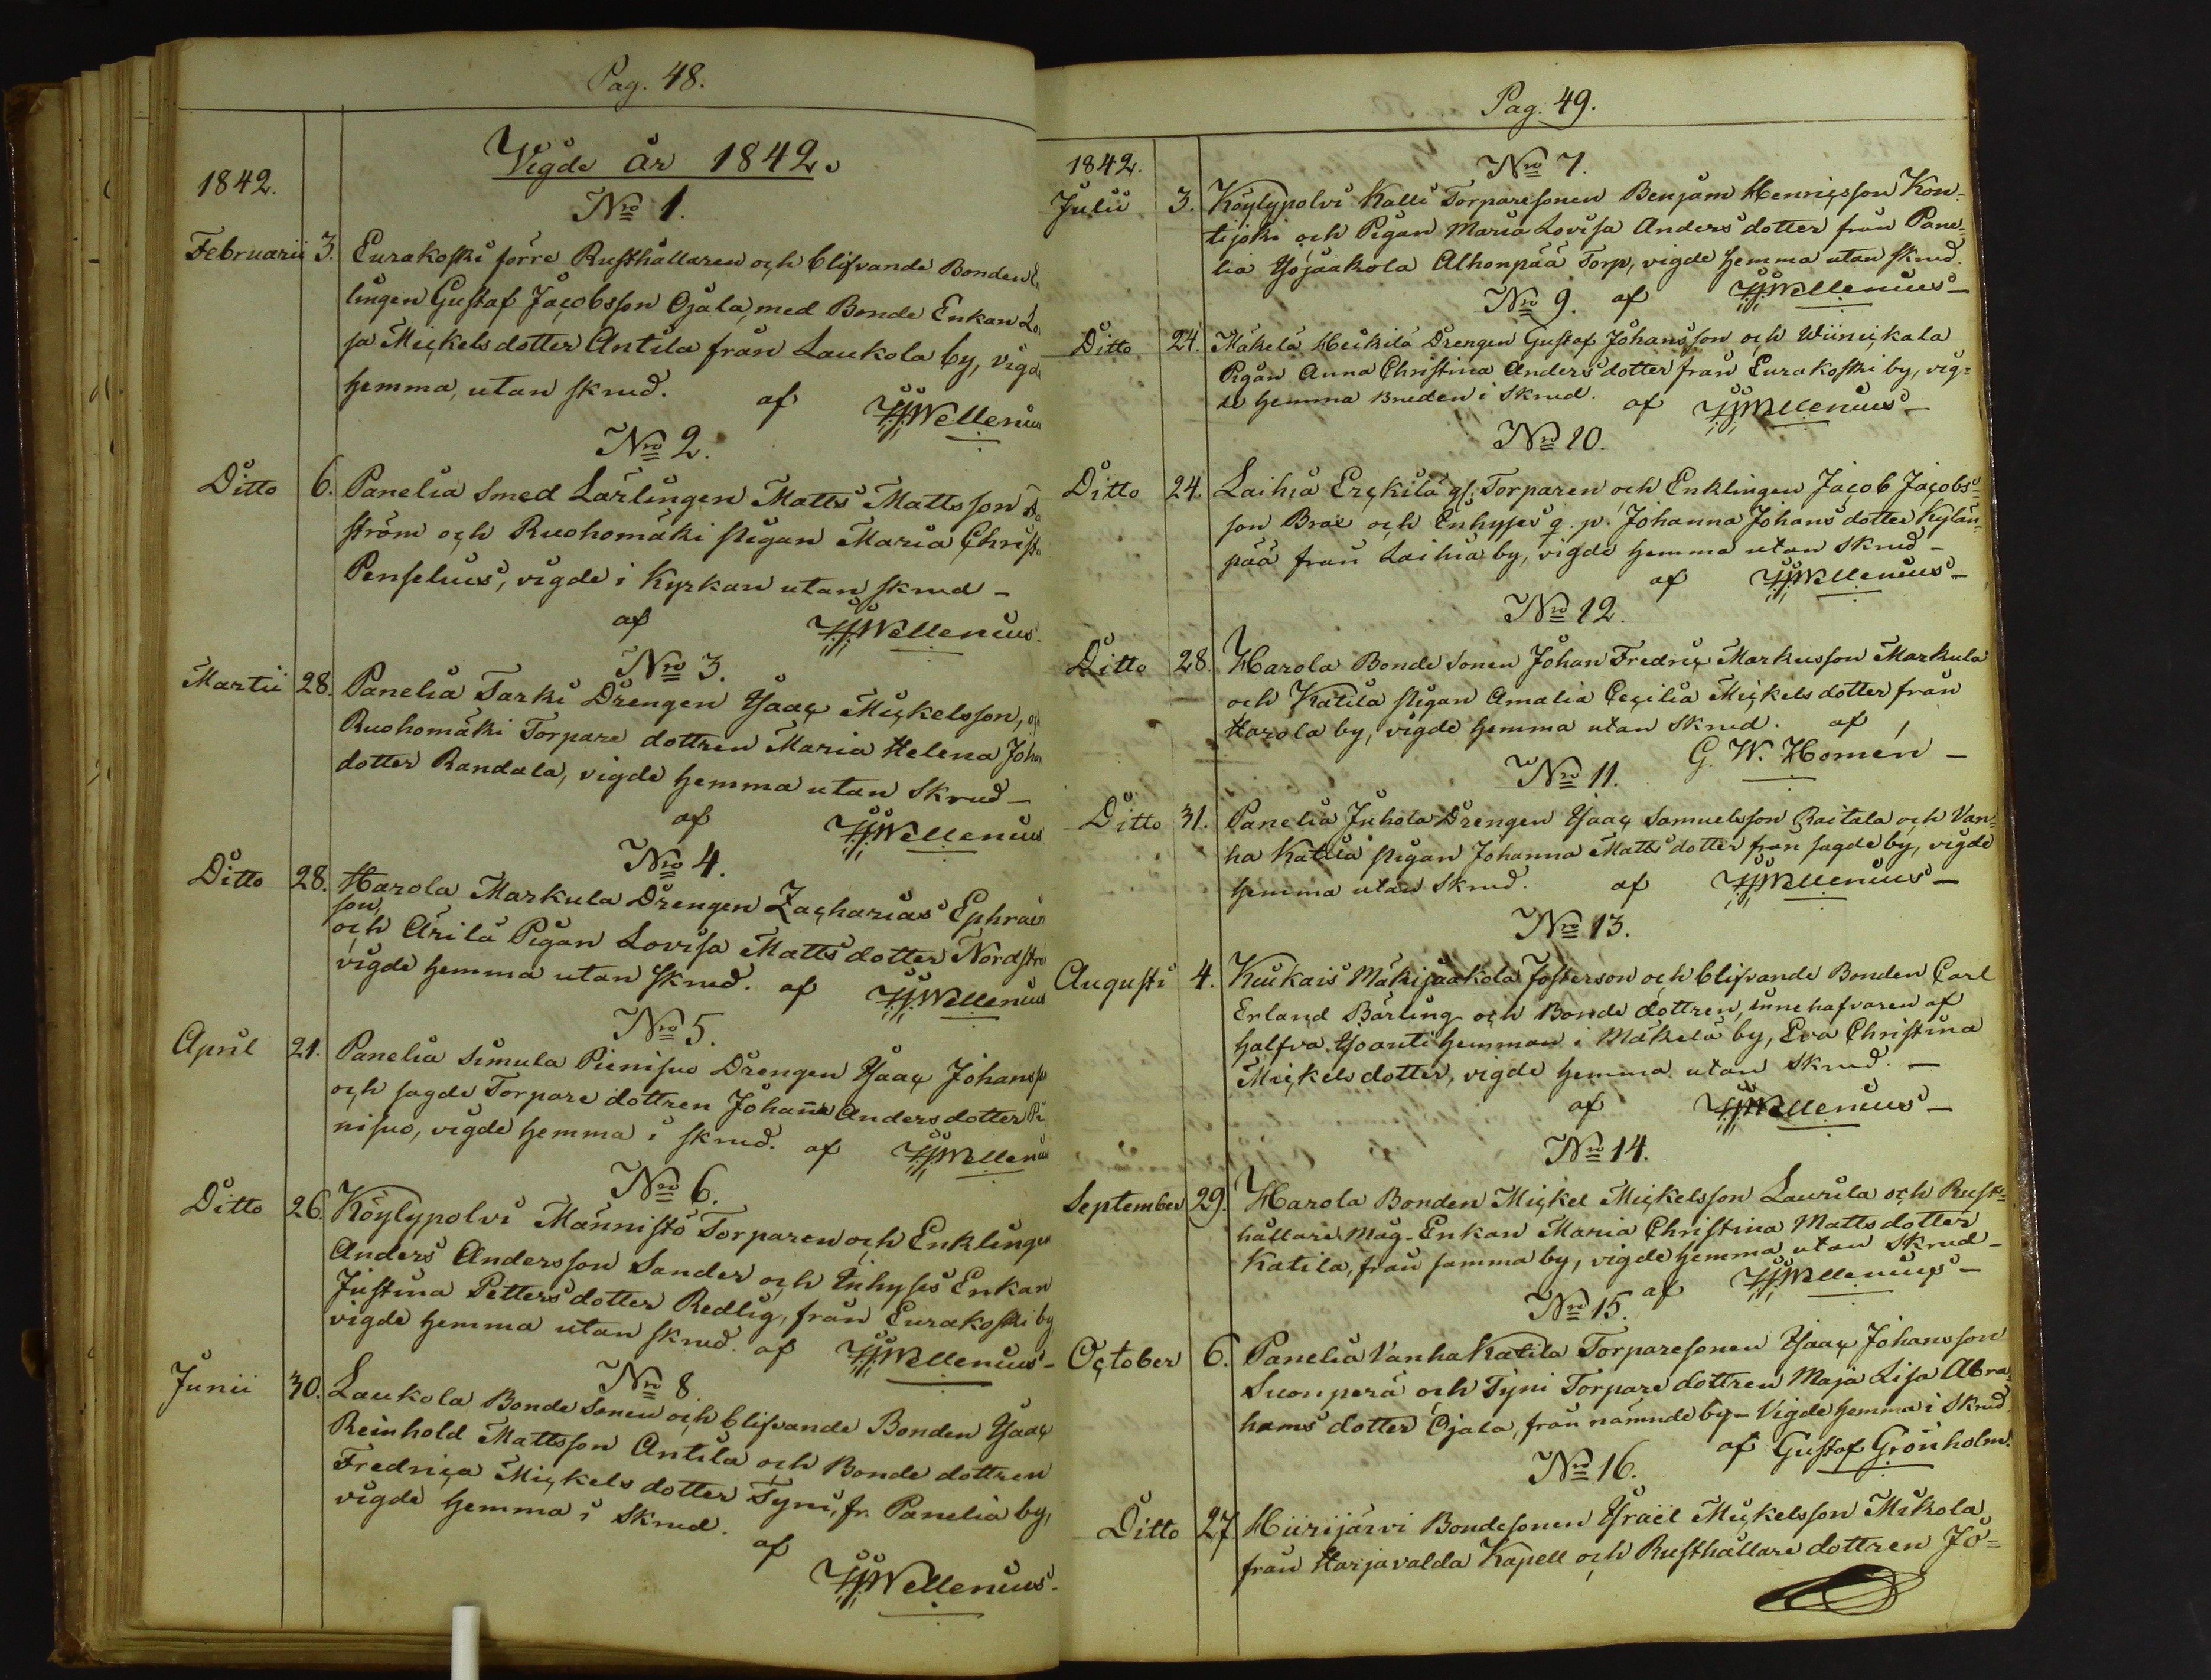 Pag. 48.
Vigde år 1842.
1842.
Nro 1.
Februarii 3. Eurakoski förre Rusthållaren och blifvande Bonden
lingen Gustaf Jacobsson Ojala, med Bonde Enkan
sa Mickelsdotter Antila från Laukola by, vigde
hemma, utan skrud. af HHWellenius
Nro 2.
Ditto 6. Panelia Smed Lärlingen Matts Mattsson
ström och Ruohomäki pigan Maria Christi
Penselius, vigde i Kyrkan utan skrud –
af HHWellenius
Nro 3.
Martii 28. Panelia Tarki Drengen Ysaac Mickelsson, och
Ruohomäki Torpare dottren Maria Helena Johans
dotter Randala, vigde hemma utan skrud –
af HHWellenius
Nro 4.
Ditto 28. Harola Markula Drengen Zacharias Ephraims
son,
och Ärilä Pigan Lovisa Mattsdotter Nordström
vigde hemma utan skrud. af HHWellenius
Nro 5.
April 21. Panelia Simula Pienisuo Drengen Ysaac Johansson
och sagde Torpare dottren Johanna Andersdotter Pi
nisuo, vigde hemma i skrud. af HHWellenius
Nro 6.
Ditto 26. Köylypolvi Männistö Torparen och Enklingen
Anders Andersson Sander och Inhyses Enkan
Justina Pettersdotter Redlig, från Eurakoski by
vigde hemma utan skrud. af HHWellenius –
Nro 8.
Junii 30. Laukola Bonde Sonen och blifvande Bonden Ysaac
Reinhold Mattsson Antila och Bonde dottren
Fredrica Mickels dotter Tyni, fr. Panelia by,
vigde hemma i skrud.
af
HHWellenius.
Pag. 49.
1842.
Nro 7.
Julii 3. Köylypolvi Kalli Torparesonen Benjam Henricsson Kon-
tijoki och Pigan Maria Lovisa Andersdotter från Pane-
lia Yöjaakola Alhonpää Torp, vigde hemma utan skrud.
Nro 9. af HHWellenius –
Ditto 24. Mäkelä Heikilä Drengen Gustaf Johansson och Wiinickala
Pigan Anna Christina Andersdotter från Eurakoski by, vig-
de hemma Bruden i Skrud. af HHWellenius –
Nro 10.
Ditto 24. Laihia Erckilä gl. Torparen och Enklingen Jacob Jacobs-
son Brae och Enhyses q. p. Johanna Johansdotter Kylän-
pää från Laihia by, vigde hemma utan skrud –
af HHWellenius –
Nro 12.
Ditto 28. Harola Bonde Sonen Johan Fredric Markusson Markula
och Katila pigan Amalia Cecilia Mickelsdotter från
Harola by, vigde hemma utan skrud. af
G. W. Homén –
Nro 11.
Ditto 31. Panelia Juhola Drengen Ysaac Samuelsson Raitala och Van-
ha Katila pigan Johanna Mattsdotter från sagde by, vigde
hemma utan skrud. af HHWellenius –
Nro 13.
Augusti 4. Kiukais Mäkijaakola Fosterson och blifvande Bonden Carl
Erland Bärling och Bonde dottren, innehafvaren af
halfva Yoanti hemman i Mäkelä by, Eva Christina
Mickelsdotter, vigde hemma utan skrud. –
af HHWellenius –
Nro 14.
September 29. Harola Bonden Mickel Mickelsson Laurila och Rust-
hållare Måg-Enkan Maria Christina Mattsdotter
Katila, från samma by, vigde hemma utan skrud –
af HHWellenius –
Nro 15.
October 6. Panelia Vanha Katila Torparesonen Ysaac Johansson
Suonperä och Tyni Torpare dottren Maja Lisa Abra-
hams dotter Ojala, från nämnde by – Vigde hemma i Skrud.
af Gustaf Grönholm.
Nro 16.
Ditto 27 Hiirijärvi Bondesonen Ysraël Mickelsson Mikola
från Harjavalda Kapell och Rusthållare dottren Jo-